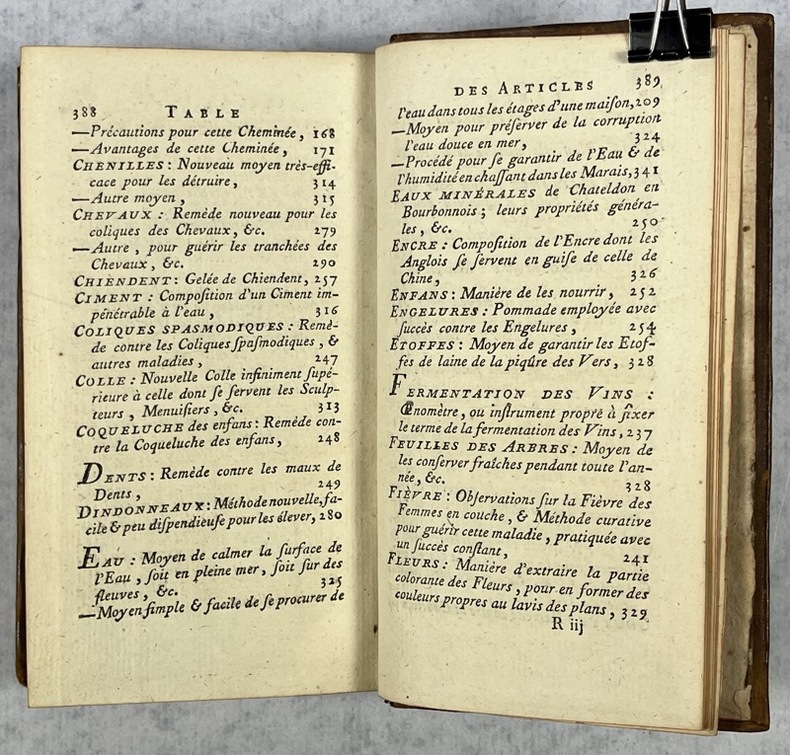 388 TABLE
—Précautions pour cette Cheminée, 168
—Avantages de cette Cheminée, 171
CHENILLES : Nouveau moyen très-effi-
cace pour les détruire, 314
—Autre moyen, 315
CHEVAUX : Remède nouveau pour les
coliques des Chevaux, &c. 279
—Autre, pour guérir les tranchées des
Chevaux, &c. 290
CHIENDENT : Gelée de Chiendent, 257
CIMENT : Compoſition d'un Ciment im-
pénétrable à l'eau, 316
COLIQUES SPASMODIQUES : Remè-
de contre les Coliques ſpaſmodiques, &
autres maladies, 247
COLLE : Nouvelle Colle infiniment ſupé-
rieure à celle dont ſe ſervent les Sculp-
teurs, Menuiſiers, &c. 313
COQUELUCHE des enfans : Remède con-
tre la Coqueluche des enfans, 248
DENTS : Remède contre les maux de
Dents, 249
DINDONNEAUX : Méthode nouvelle, fa-
cile & peu diſpendieuſe pour les élever, 280
EAU : Moyen de calmer la ſurface de
l'Eau, ſoit en pleine mer, ſoit ſur des
fleuves, &c. 325
—Moyen ſimple & facile de ſe procurer de
DES ARTICLES 389
l'eau dans tous les étages d'une maiſon, 209
—Moyen pour préſerver de la corruption
l'eau douce en mer, 324
—Procédé pour ſe garantir de l'Eau & de
l'humidité en chaſſant dans les Marais, 341
EAUX MINÉRALES de Chateldon en
Bourbonnois ; leurs propriétés généra-
les, &c. 250
ENCRE : Compoſition de l'Encre dont les
Anglois ſe ſervent en guiſe de celle de
Chine, 326
ENFANS : Manière de les nourrir, 252
ENGELURES : Pommade employée avec
ſuccès contre les Engelures, 254
ETOFFES : Moyen de garantir les Etof-
fes de laine de la piqûre des Vers, 328
FERMENTATION DES VINS :
Œnomètre, ou inſtrument propre à fixer
le terme de la fermentation des Vins, 237
FEUILLES DES ARBRES : Moyen de
les conſerver fraîches pendant toute l'an-
née, &c. 328
FIÈVRE : Obſervations ſur la Fièvre des
Femmes en couche, & Méthode curative
pour guérir cette maladie, pratiquée avec
un ſuccès conſtant, 241
FLEURS : Manière d'extraire la partie
colorante des Fleurs, pour en former des
couleurs propres au lavis des plans, 329
R iij